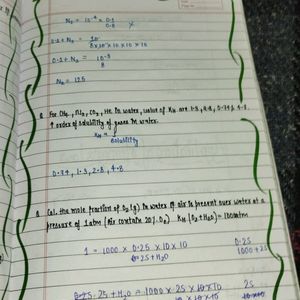 N₂ = 10⁻⁴ × 0.1
0.8
0.1 + N₂ = 10
8×10×10×10×10
0.1 + N₂ = 10⁻³
8
N₂ = 125
Q For CH₄, CO₂, He in water, value of K_H are 1.3, 2.8, 0.74 & 4.8
↑ order of solubility of gases in water.
K_H = 1
Solubility
0.74, 1.3, 2.8, 4.8
Q Cal. the mole fraction of O₂(g) in water if air is present over water at a
pressure of 1 atm [Air contain 20% O₂] K_H (O₂+H₂O) = 1000 atm
1 = 1000 × 0.25 × 10 × 10
0.25 + H₂O
0.25
1000 + 25
25 + H₂O = 1000 × 25 × 10 × 10
25